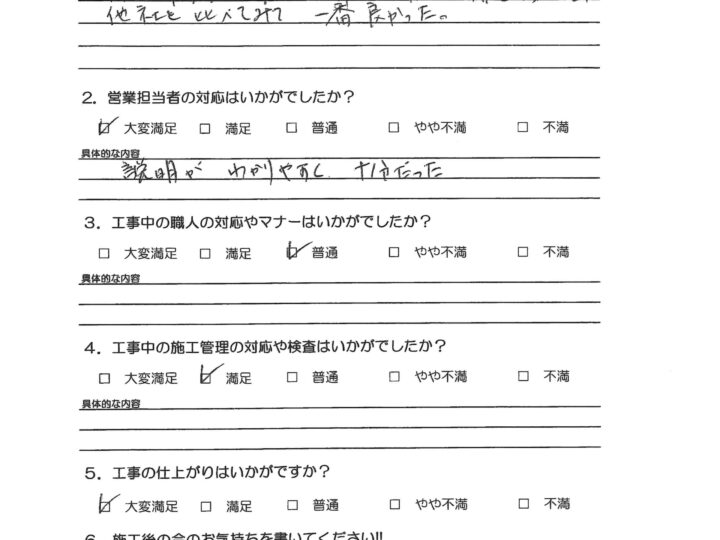 他社と比べてみて 一番良かった。
2. 営業担当者の対応はいかがでしたか？
☑ 大変満足 □ 満足 □ 普通 □ やや不満 □ 不満
具体的な内容
説明が わかりやすく 十分だった
3. 工事中の職人の対応やマナーはいかがでしたか？
□ 大変満足 □ 満足 ☑ 普通 □ やや不満 □ 不満
具体的な内容
4. 工事中の施工管理の対応や検査はいかがでしたか？
□ 大変満足 ☑ 満足 □ 普通 □ やや不満 □ 不満
具体的な内容
5. 工事の仕上がりはいかがですか？
☑ 大変満足 □ 満足 □ 普通 □ やや不満 □ 不満
6. 施工後の今のお気持ちを書いてください!!